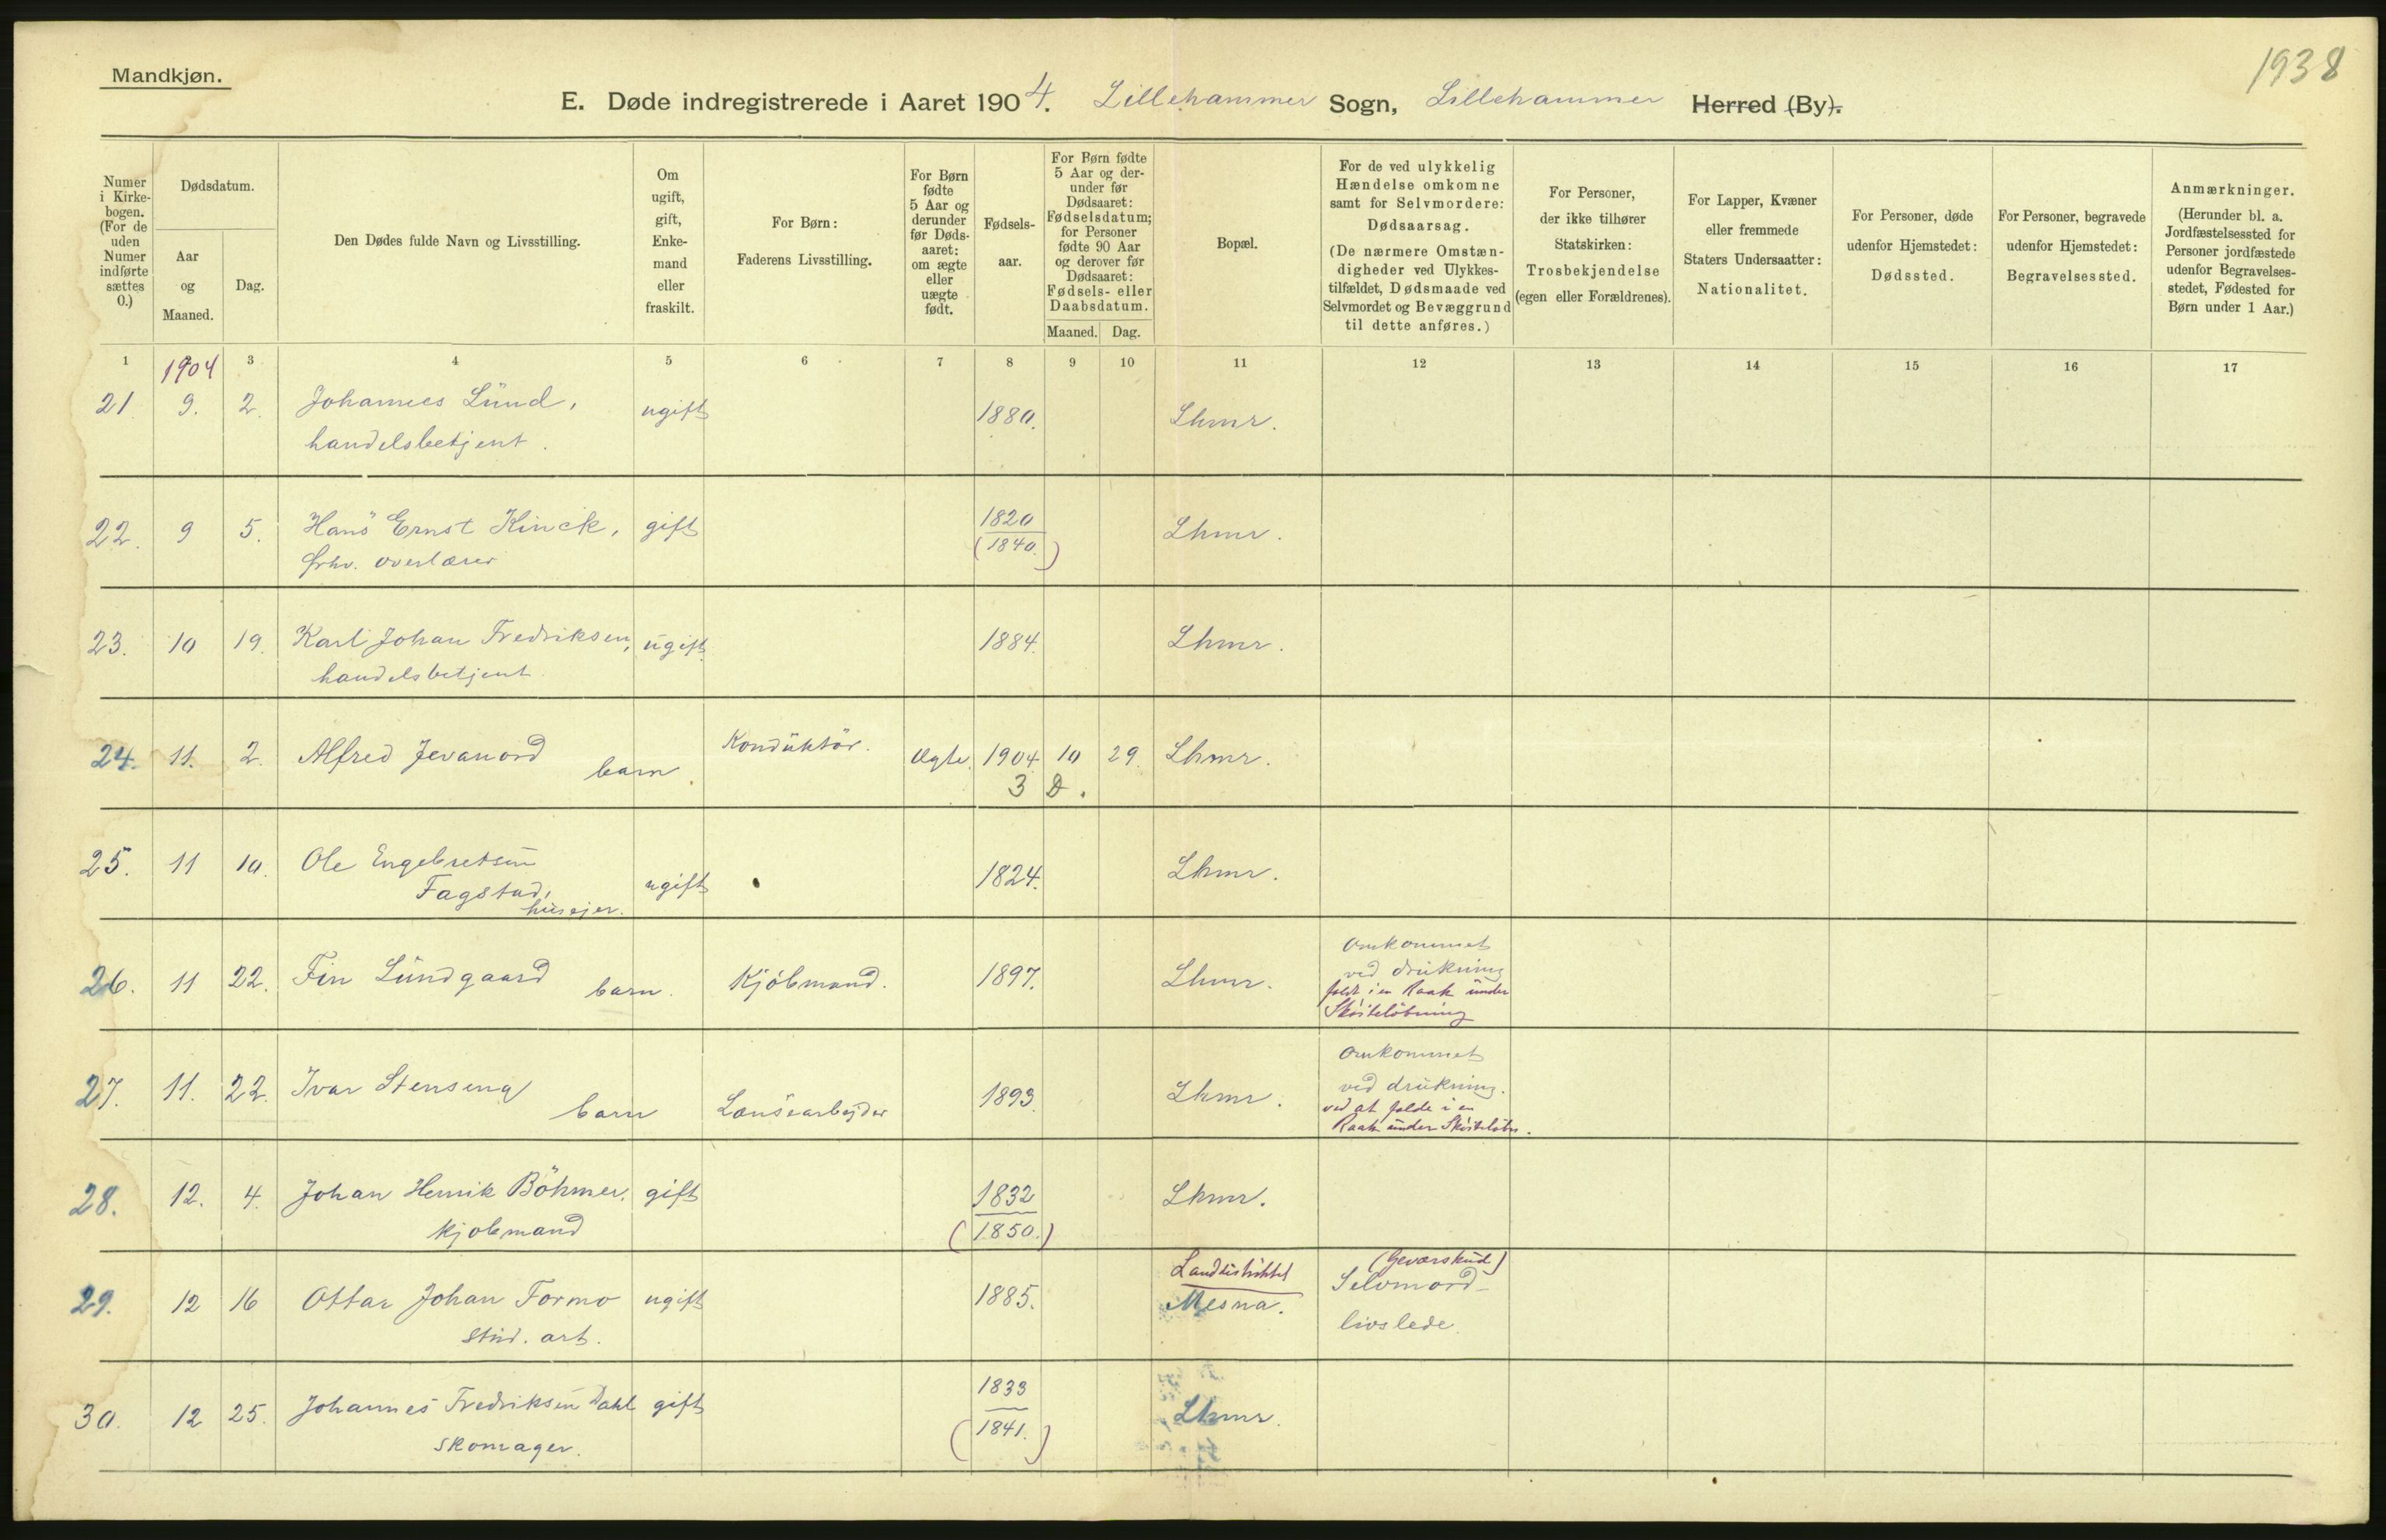 1938
Mandkjøn.
E. Døde indregistrerede i Aaret 1904. Lillehammer Sogn, Lillehammer Herred (By).
Numer i Kirke-bogen. (For de uden Numer indførte sættes 0.)
Dødsdatum.
Aar og Maaned.
Dag.
Den Dødes fulde Navn og Livsstilling.
Om ugift, gift, Enke-mand eller fraskilt.
For Børn: Faderens Livsstilling.
For Børn fødte 5 Aar og derunder før Døds-aaret: om ægte eller uægte født.
Fødsels-aar.
For Børn fødte 5 Aar og der-under før Dødsaaret: Fødselsdatum; for Personer fødte 90 Aar og derover før Dødsaaret: Fødsels- eller Daabsdatum.
Maaned. Dag.
Bopæl.
For de ved ulykkelig Hændelse omkomne samt for Selvmordere: Dødsaarsag. (De nærmere Omstæn-digheder ved Ulykkes-tilfældet, Dødsmaade ved Selvmordet og Bevæggrund til dette anføres.)
For Personer, der ikke tilhører Statskirken: Trosbekjendelse (egen eller Forældrenes).
For Lapper, Kvæner eller fremmede Staters Undersaatter: Nationalitet.
For Personer, døde udenfor Hjemstedet: Dødssted.
For Personer, begravede udenfor Hjemstedet: Begravelsessted.
Anmærkninger. (Herunder bl. a. Jordfæstelsessted for Personer jordfæstede udenfor Begravelses-stedet, Fødested for Børn under 1 Aar.)
1 2 3 4 5 6 7 8 9 10 11 12 13 14 15 16 17
1904
21 9. 2. Johannes Lund, ugift 1880. Lhmr.
handelsbetjent.
22. 9 5. Hans Ernst Kinck, gift 1820 (1840.) Lhmr.
fhv. overlærer
23. 10 19. Karl Johan Fredriksen, ugift 1884. Lhmr.
handelsbetjent
24. 11. 2. Alfred Jevanord barn. Konduktör. Ægte. 1904 10 29. Lhmr.
3 D.
25. 11 10. Ole Engebretsen
Fagstad, ugift 1824. Lhmr.
husejer.
26. 11 22. Fin Lundgaard barn. Kjöbmand. 1897. Lhmr. Omkommet
ved drukning
faldt i en Raak under
Sköiteløbning
27. 11. 22. Ivar Stenseng barn Lænsearbejder 1893. Lhmr. Omkommet
ved drukning.
ved at falde i en
Raak under Sköiteløbn.
28. 12. 4. Johan Henrik Böhmer. gift 1832 (1850.) Lhmr.
kjøbmand
29. 12 16 Ottar Johan Formo ugift 1885. Landdistriktet (Geværskud)
Mesna. Selvmord-
stud. art. livslede.
30. 12 25. Johannes Fredriksen Dahl gift 1833 (1841.) Lhmr.
skomager.